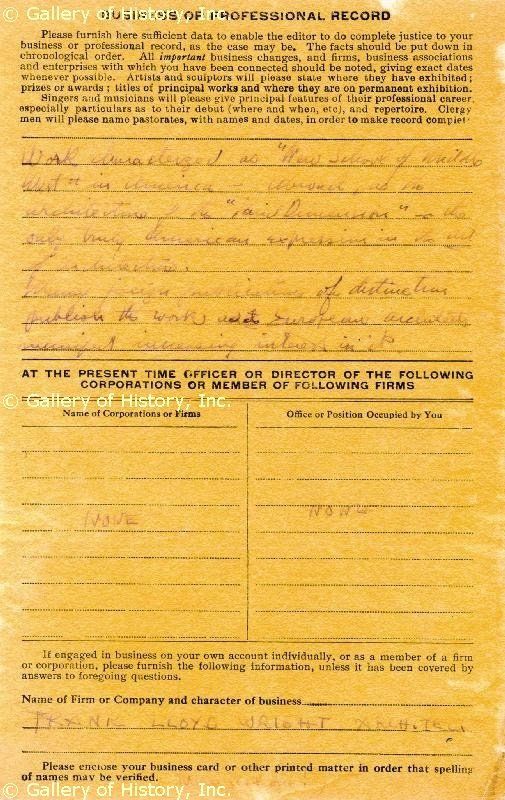 BUSINESS OF PROFESSIONAL RECORD
© Gallery of History, Inc.
Please furnish here sufficient data to enable the editor to do complete justice to your
business or professional record, as the case may be. The facts should be put down in
chronological order. All important business changes, and firms, business associations
and enterprises with which you have been connected should be noted, giving exact dates
whenever possible. Artists and sculptors will please state where they have exhibited;
prizes or awards; titles of principal works and where they are on permanent exhibition.
Singers and musicians will please give principal features of their professional career,
especially particulars as to their debut (where and when, etc), and repertoire. Clergy
men will please name pastorates, with names and dates, in order to make record complet
Work characterized as "New School of Middle
West" in America
architecture to the
only truly American expression in
of distinction
publish the work and European
increasing interest in it
AT THE PRESENT TIME OFFICER OR DIRECTOR OF THE FOLLOWING
CORPORATIONS OR MEMBER OF FOLLOWING FIRMS
© Gallery of History, Inc.
Name of Corporations or Firms
Office or Position Occupied by You
NONE
NONE
If engaged in business on your own account individually, or as a member of a firm
or corporation, please furnish the following information, unless it has been covered by
answers to foregoing questions.
Name of Firm or Company and character of business
FRANK LLOYD WRIGHT ARCHITECT
Please enclose your business card or other printed matter in order that spelling
of names may be verified.
© Gallery of History, Inc.